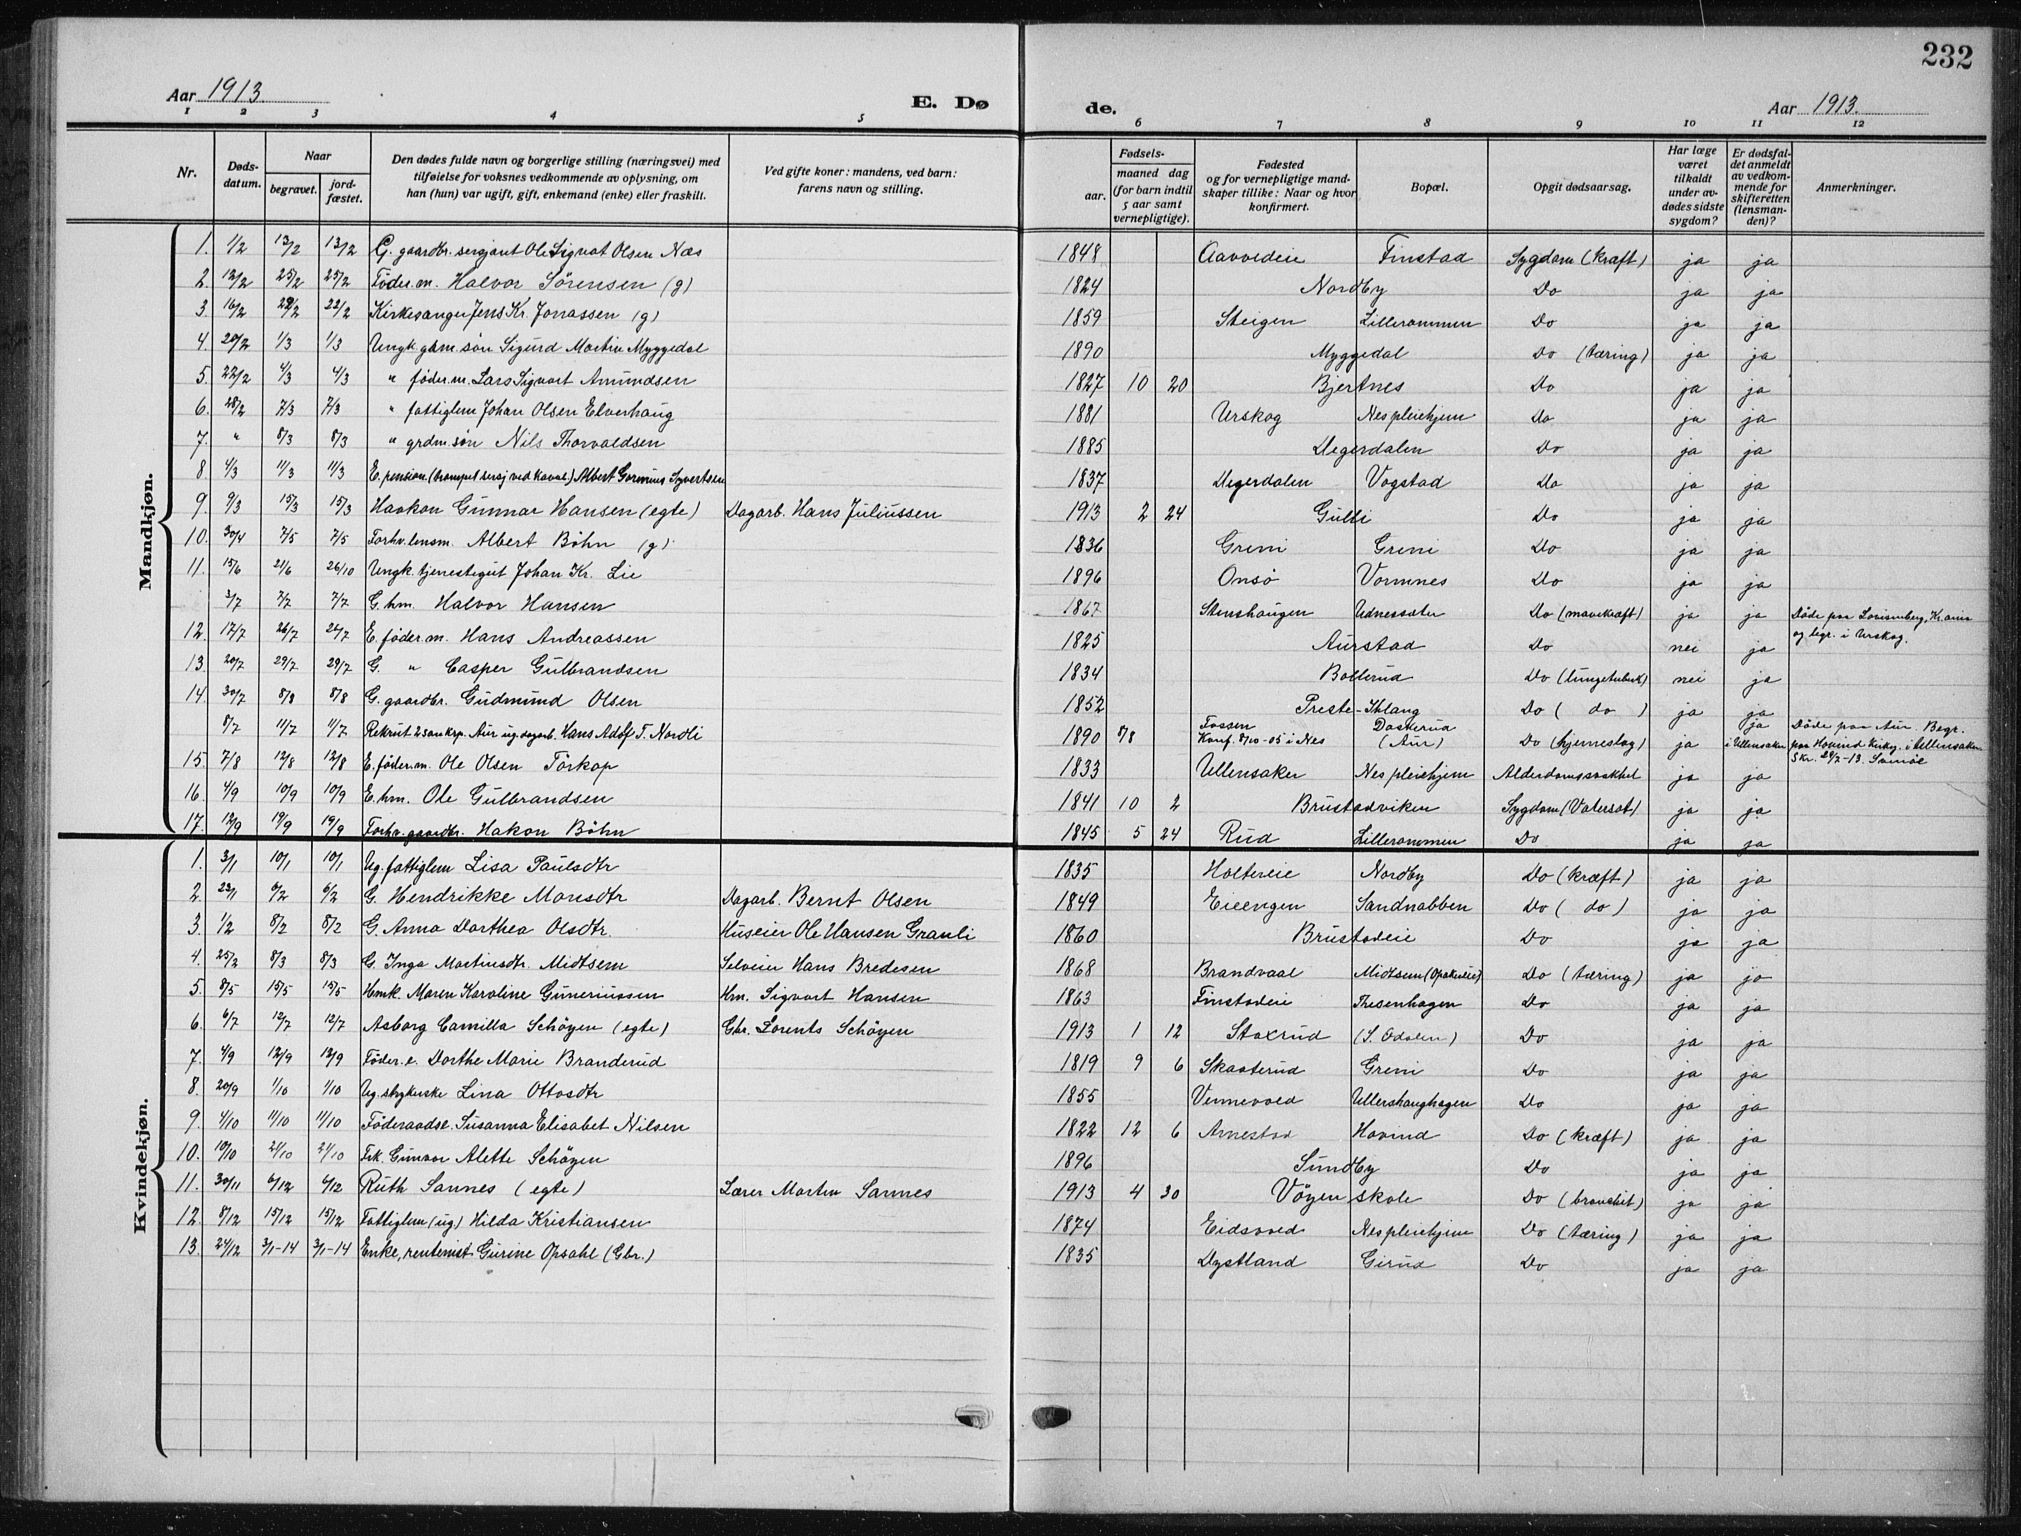 232
Aar 1913. E. Dø de. Aar 1913.
1 2 3 4 5 6 7 8 9 10 11 12
Nr.
Døds-
datum.
Naar
begravet.
jord-
fæstet.
Den dødes fulde navn og borgerlige stilling (næringsvei) med
tilføielse for voksnes vedkommende av oplysning, om
han (hun) var ugift, gift, enkemand (enke) eller fraskilt.
Ved gifte koner: mandens, ved barn:
farens navn og stilling.
Fødsels-
aar.
maaned dag
(for barn indtil
5 aar samt
vernepligtige).
Fødested
og for vernepligtige mand-
skaper tillike: Naar og hvor
konfirmert.
Bopæl.
Opgit dødsaarsag.
Har læge
været
tilkaldt
under av-
dødes sidste
sygdom?
Er dødsfal-
det anmeldt
av vedkom-
mende for
skifteretten
(lensman-
den)?
Anmerkninger.
Mandkjøn.
1. 1/2 13/2 13/2 G. gaardbr. sersjant Ole Sigvat Olsen Næs 1848 Aavvedeie Finstad Sygdom (kræft) ja ja
2. 12/2 25/2 25/2 Föder.m. Halvor Sørensen (g) 1824 Nordby Do ja ja
3 16/2 22/2 22/2 Kirkesanger Jens Kr. Jonassen (g) 1859 Steigen Lillerommen Do ja ja
4. 20/2 1/3 1/3 Ungk. gbm. søn Sigurd Martin Myggedal 1890 Myggedal Do (tæring) ja ja
5. 22/2 4/3 4/3 " føder.m. Lars Sigvart Amundsen 1827 10 20 Bjertnes Do ja ja
6. 28/2 7/3 7/3 " fattiglem Johan Olsen Elverhaug 1881 Urskog Nes pleiehjem Do ja ja
7. " 8/3 8/3 " grdm. søn Nils Thorvaldsen 1885 Degerdalen Do ja ja
8 4/3 11/3 11/3 E. pension. (trompet sersj ved Kaval.) Albert Gormius Syvertsen 1837 Degerdalen Vogstad Do ja ja
9. 9/3 15/3 15/3 Haakon Gunnar Hansen (egte) Dagarb. Hans Juliussen 1913 2 24 Gulli Do ja ja
10. 30/4 7/5 7/5 Forhv. lensm. Albert Bøhn (g) 1836 Greni Greni Do ja ja
11. 15/6 21/6 26/10 Ungk. tjenestegut Johan Kr. Lie 1896 Onsø Vormnes Do ja ja
3/7 7/7 7/7 G. hm. Halvor Hansen 1867 Stenshaugen Udnessæter Do (mavekræft) ja ja Døde paa Lovisenberg, Kr.ania
og begr. i Urskog.
12. 17/7 26/7 24/7 E. føder.m. Hans Andreassen 1825 Aurstad Do nei ja
13 20/7 29/7 29/7 G. " Casper Gulbrandsen 1834 Bollerud Do (lungetuberk) nei ja
14. 30/7 8/8 8/8 G. gaardbr. Gudmund Olsen 1852 Preste-Ihlang Do ( do ) ja ja
8/7 11/7 11/7 Rekrut 2 san krp. Aur ug. dagarb. Hans Adolf T. Nordli 1890 7/8 Fossen
Konf. 8/10-05 i Nes Daskerud
(Aur) Do (hjerneslag) ja ja
i Ullensaker Døde paa Aur. Begr.
paa Hovind kirkg. i Ullensaker
Skr. 29/7-13.
15. 7/8 12/8 12/8 E. føder.m. Ole Olsen Törkop 1833 Ullensaker Nes pleiehjem Alderdomssvakhet ja ja
16. 4/9 10/9 10/9 E. hm. Ole Gulbrandsen 1841 10 2 Brustadviken Sygdom (Vatersot) ja ja
17. 12/9 19/9 19/9 Forhv. gaardbr. Hakon Bøhn 1845 5 24 Rud Lillerommen Do ja ja
Kvindekjøn.
1. 3/1 10/1 10/1 Ug. fattiglem Lisa Paulsdtr 1835 Holtereie Nordby Do (kræft) ja ja
2. 23/1 6/2 6/2 G. Hendrikke Monsdtr Dagarb. Bernt Olsen 1849 Eieengen Sandnabben Do ( do ) ja ja
3. 1/2 8/2 8/2 G. Anna Dorthea Olsdtr. Huseier Ole Hansen Granli 1860 Brustadeie Do ja ja
4. 25/2 8/3 8/3 G. Inga Martinsdtr. Midtsem Selveier Hans Bredesen 1868 Brandvaal Midtsem (Opakereie) Do (tæring) ja ja
5. 8/5 15/5 15/5 Hmk. Maren Karoline Guneriussen Hm. Sigvart Hansen 1863 Finstadeie Tresenhagen Do ja ja
6. 6/7 12/7 12/7 Asborg Camilla Schøyen (egte) Gbr. Lorents Schøyen 1913 1 12 Staxrud (S. Odalen) Do ja ja
7 4/9 12/9 12/9 Føder.e. Dorthe Marie Branderud 1819 9 6 Skaaterud Greni Do ja ja
8. 20/9 1/10 1/10 Ug. strykerske Lina Ottosdtr 1855 Vennevold Ullershaughagen Do ja ja
9. 4/10 11/10 11/10 Føderaadse. Susanna Elisabet Nilsen 1822 12 6 Arnestad Hovind Do (kræft) ja ja
10. 10/10 21/10 21/10 Frk. Gunvor Alette Schøyen 1896 Sundby Do ja ja
11. 30/11 6/12 6/12 Ruth Sannes (egte) Lærer Martin Sannes 1913 4 30 Vøyen skole Do (bronchit) ja ja
12. 8/12 15/12 15/12 Fattiglem (ug) Hilda Kristiansen 1874 Eidsvold Nes pleiehjem Do (tæring) ja ja
13. 24/12 3/1-14 3/1-14 Enke, rentenist Gurine Opsahl (Gbr.) 1835 Dystland Girud Do ja ja